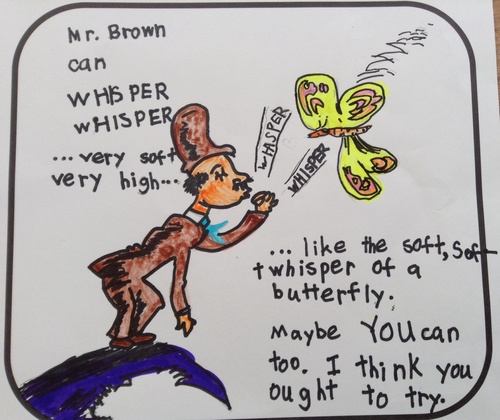 Mr. Brown
can
WHISPER
WHISPER
...very soft
very high...
WHISPER
WHISPER
... like the soft, sof-
t whisper of a
butterfly.
Maybe YOU can
too. I think you
ought to try.